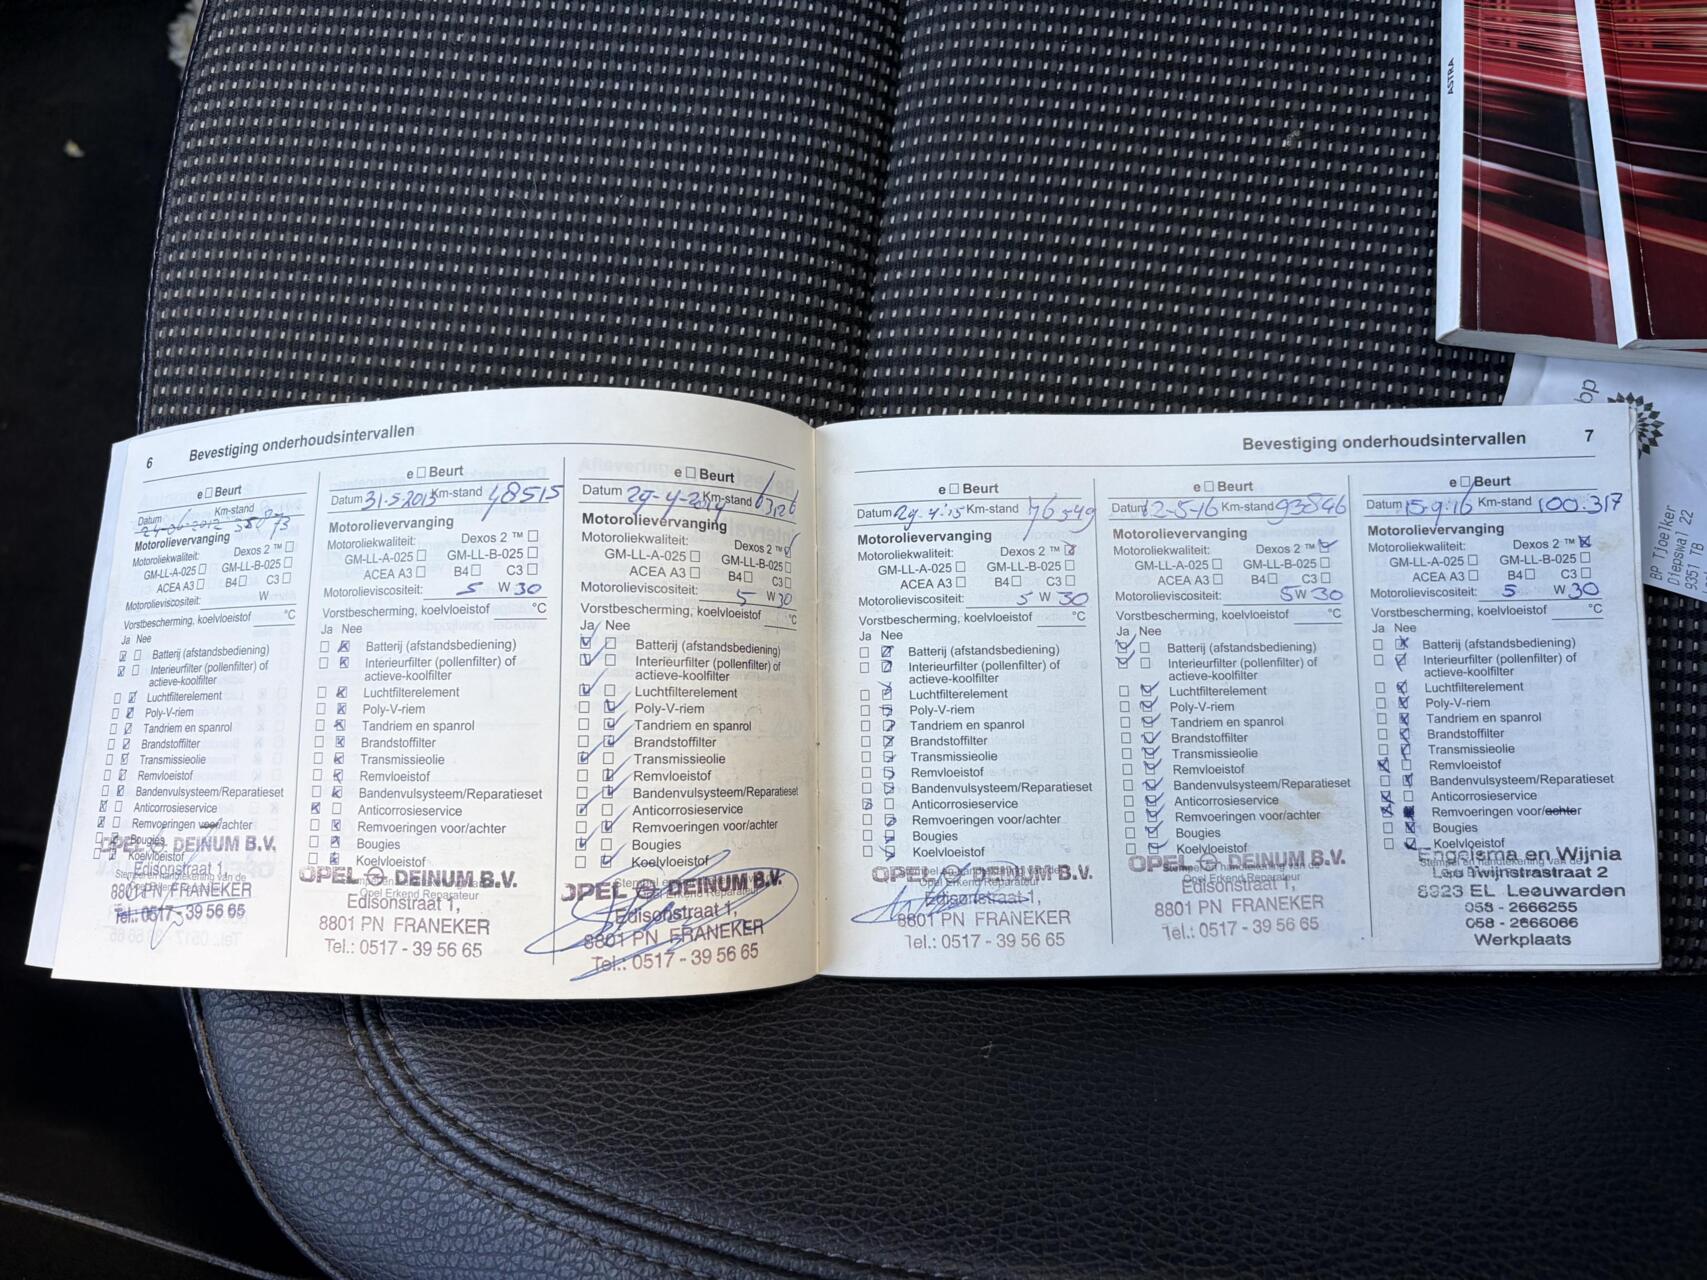 ASTRA
bp
BP Tjoelker
Diepswal 22
9351 TB
6 Bevestiging onderhoudsintervallen
e □ Beurt
Datum 24-06-2012 Km-stand
Motorolievervanging
Motoroliekwaliteit: Dexos 2 ™ □
GM-LL-A-025 □ GM-LL-B-025 □
ACEA A3 □ B4 □ C3 □
Motorolieviscositeit: W
Vorstbescherming, koelvloeistof °C
Ja Nee
Batterij (afstandsbediening)
Interieurfilter (pollenfilter) of
actieve-koolfilter
Luchtfilterelement
Poly-V-riem
Tandriem en spanrol
Brandstoffilter
Transmissieolie
Remvloeistof
Bandenvulsysteem/Reparatieset
Anticorrosieservice
Remvoeringen voor/achter
Bougies
Koelvloeistof
Stempel en handtekening van de
Opel Erkend Reparateur
OPEL DEINUM B.V.
Edisonstraat 1,
8801 PN FRANEKER
Tel.: 0517 - 39 56 65
e □ Beurt
Datum 31-5-2013 Km-stand 48515
Motorolievervanging
Motoroliekwaliteit: Dexos 2 ™ □
GM-LL-A-025 □ GM-LL-B-025 □
ACEA A3 □ B4 □ C3 □
Motorolieviscositeit: 5 W 30
Vorstbescherming, koelvloeistof °C
Ja Nee
Batterij (afstandsbediening)
Interieurfilter (pollenfilter) of
actieve-koolfilter
Luchtfilterelement
Poly-V-riem
Tandriem en spanrol
Brandstoffilter
Transmissieolie
Remvloeistof
Bandenvulsysteem/Reparatieset
Anticorrosieservice
Remvoeringen voor/achter
Bougies
Koelvloeistof
Opel Erkend Reparateur
OPEL DEINUM B.V.
Edisonstraat 1,
8801 PN FRANEKER
Tel.: 0517 - 39 56 65
e □ Beurt
Datum 29-4-2014 Km-stand 63126
Motorolievervanging
Motoroliekwaliteit: Dexos 2 ™
GM-LL-A-025 □ GM-LL-B-025 □
ACEA A3 □ B4 □ C3 □
Motorolieviscositeit: 5 W 30
Vorstbescherming, koelvloeistof °C
Ja Nee
Batterij (afstandsbediening)
Interieurfilter (pollenfilter) of
actieve-koolfilter
Luchtfilterelement
Poly-V-riem
Tandriem en spanrol
Brandstoffilter
Transmissieolie
Remvloeistof
Bandenvulsysteem/Reparatieset
Anticorrosieservice
Remvoeringen voor/achter
Bougies
Koelvloeistof
OPEL DEINUM B.V.
Edisonstraat 1,
8801 PN FRANEKER
Tel.: 0517 - 39 56 65
Bevestiging onderhoudsintervallen 7
e □ Beurt
Datum 29-4-'15 Km-stand 76549
Motorolievervanging
Motoroliekwaliteit: Dexos 2 ™
GM-LL-A-025 □ GM-LL-B-025 □
ACEA A3 □ B4 □ C3 □
Motorolieviscositeit: 5 W 30
Vorstbescherming, koelvloeistof °C
Ja Nee
Batterij (afstandsbediening)
Interieurfilter (pollenfilter) of
actieve-koolfilter
Luchtfilterelement
Poly-V-riem
Tandriem en spanrol
Brandstoffilter
Transmissieolie
Remvloeistof
Bandenvulsysteem/Reparatieset
Anticorrosieservice
Remvoeringen voor/achter
Bougies
Koelvloeistof
Stempel en handtekening van de
Opel Erkend Reparateur
OPEL DEINUM B.V.
Edisonstraat 1,
8801 PN FRANEKER
Tel.: 0517 - 39 56 65
e □ Beurt
Datum 12-5-16 Km-stand 93846
Motorolievervanging
Motoroliekwaliteit: Dexos 2 ™
GM-LL-A-025 □ GM-LL-B-025 □
ACEA A3 □ B4 □ C3 □
Motorolieviscositeit: 5 W 30
Vorstbescherming, koelvloeistof °C
Ja Nee
Batterij (afstandsbediening)
Interieurfilter (pollenfilter) of
actieve-koolfilter
Luchtfilterelement
Poly-V-riem
Tandriem en spanrol
Brandstoffilter
Transmissieolie
Remvloeistof
Bandenvulsysteem/Reparatieset
Anticorrosieservice
Remvoeringen voor/achter
Bougies
Koelvloeistof
Stempel en handtekening van de
Opel Erkend Reparateur
OPEL DEINUM B.V.
Edisonstraat 1,
8801 PN FRANEKER
Tel.: 0517 - 39 56 65
e □ Beurt
Datum 15-9-16 Km-stand 100.317
Motorolievervanging
Motoroliekwaliteit: Dexos 2 ™
GM-LL-A-025 □ GM-LL-B-025 □
ACEA A3 □ B4 □ C3 □
Motorolieviscositeit: 5 W 30
Vorstbescherming, koelvloeistof °C
Ja Nee
Batterij (afstandsbediening)
Interieurfilter (pollenfilter) of
actieve-koolfilter
Luchtfilterelement
Poly-V-riem
Tandriem en spanrol
Brandstoffilter
Transmissieolie
Remvloeistof
Bandenvulsysteem/Reparatieset
Anticorrosieservice
Remvoeringen voor/achter
Bougies
Koelvloeistof
Stempel en handtekening van de
Engelsma en Wijnia
Leo Twijnstrastraat 2
8923 EL Leeuwarden
058 - 2666255
058 - 2666066
Werkplaats